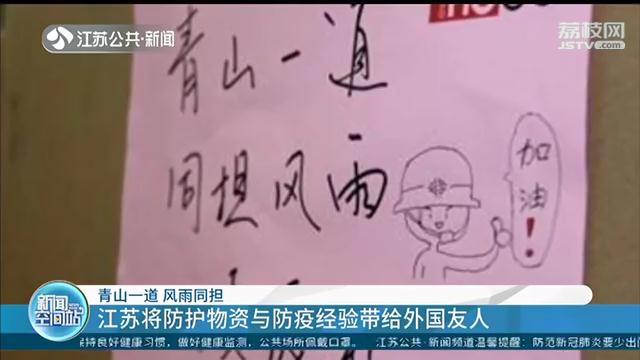 江苏公共·新闻
荔枝网
JSTV.com
青山一道
同坦风雨
加油!
新闻空间站
青山一道 风雨同担
江苏将防护物资与防疫经验带给外国友人
保持良好健康习惯,做好健康监测,公共场所佩戴口罩。
江苏公共·新闻频道温馨提醒:防范新冠肺炎要少出